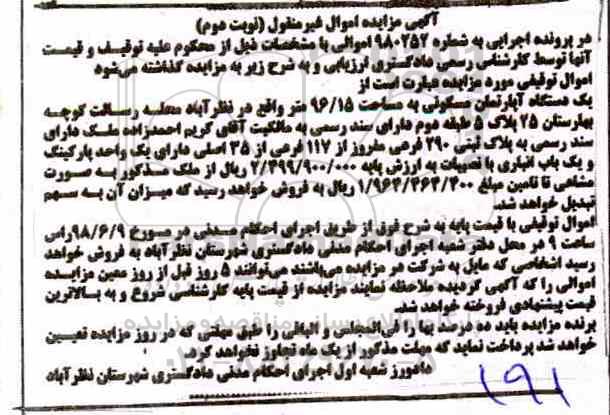 آگهی مزایده اموال غیرمنقول (نوبت دوم)
در پرونده اجرایی به شماره ۹۸۰۲۵۲ اموالی با مشخصات ذیل از محکوم علیه توقیف و قیمت
آنها توسط کارشناس رسمی دادگستری ارزیابی و به شرح زیر به مزایده گذاشته می‌شود
اموال توقیفی مورد مزایده عبارت است از
یک دستگاه آپارتمان مسکونی به مساحت ۹۶/۱۵ متر واقع در نظرآباد محله رسالت کوچه
بهارستان ۲۵ پلاک ۵ طبقه دوم دارای سند رسمی به مالکیت آقای کریم احمدزاده ملک دارای
سند رسمی به پلاک ثبتی ۲۹۰ فرعی مفروز از ۱۱۷ فرعی از ۳۵ اصلی دارای یک واحد پارکینگ
و یک باب انباری با نصبیات به ارزش پایه ۲/۴۹۹/۹۰۰/۰۰۰ ریال از ملک مذکور به صورت
مشاعی تا تامین مبلغ ۱/۹۶۴/۴۶۴/۴۰۰ ریال به فروش خواهد رسید که میزان آن به سهم
تبدیل خواهد شد.
اموال توقیفی با قیمت پایه به شرح فوق از طریق اجرای احکام مدنی در مورخ ۹۸/۶/۹ راس
ساعت ۹ در محل دفتر شعبه اجرای احکام مدنی دادگستری شهرستان نظرآباد به فروش خواهد
رسید اشخاصی که مایل به شرکت در مزایده می‌باشند می‌توانند ۵ روز قبل از روز معین مزایده
اموالی را که آگهی گردیده ملاحظه نمایند مزایده از قیمت پایه کارشناسی شروع و به بالاترین
قیمت پیشنهادی فروخته خواهد شد.
برنده مزایده باید ده درصد بها را فی‌المجلس و الباقی را طبق مهلتی که در روز مزایده تعیین
خواهد شد پرداخت نماید که مهلت مذکور از یک ماه تجاوز نخواهد کرد.
دادورز شعبه اول اجرای احکام مدنی دادگستری شهرستان نظرآباد
۱۹۱